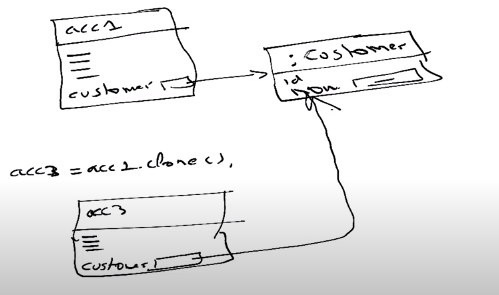 acc1
customer
: Customer
id
nom
acc3 = acc1.clone();
acc3
customer